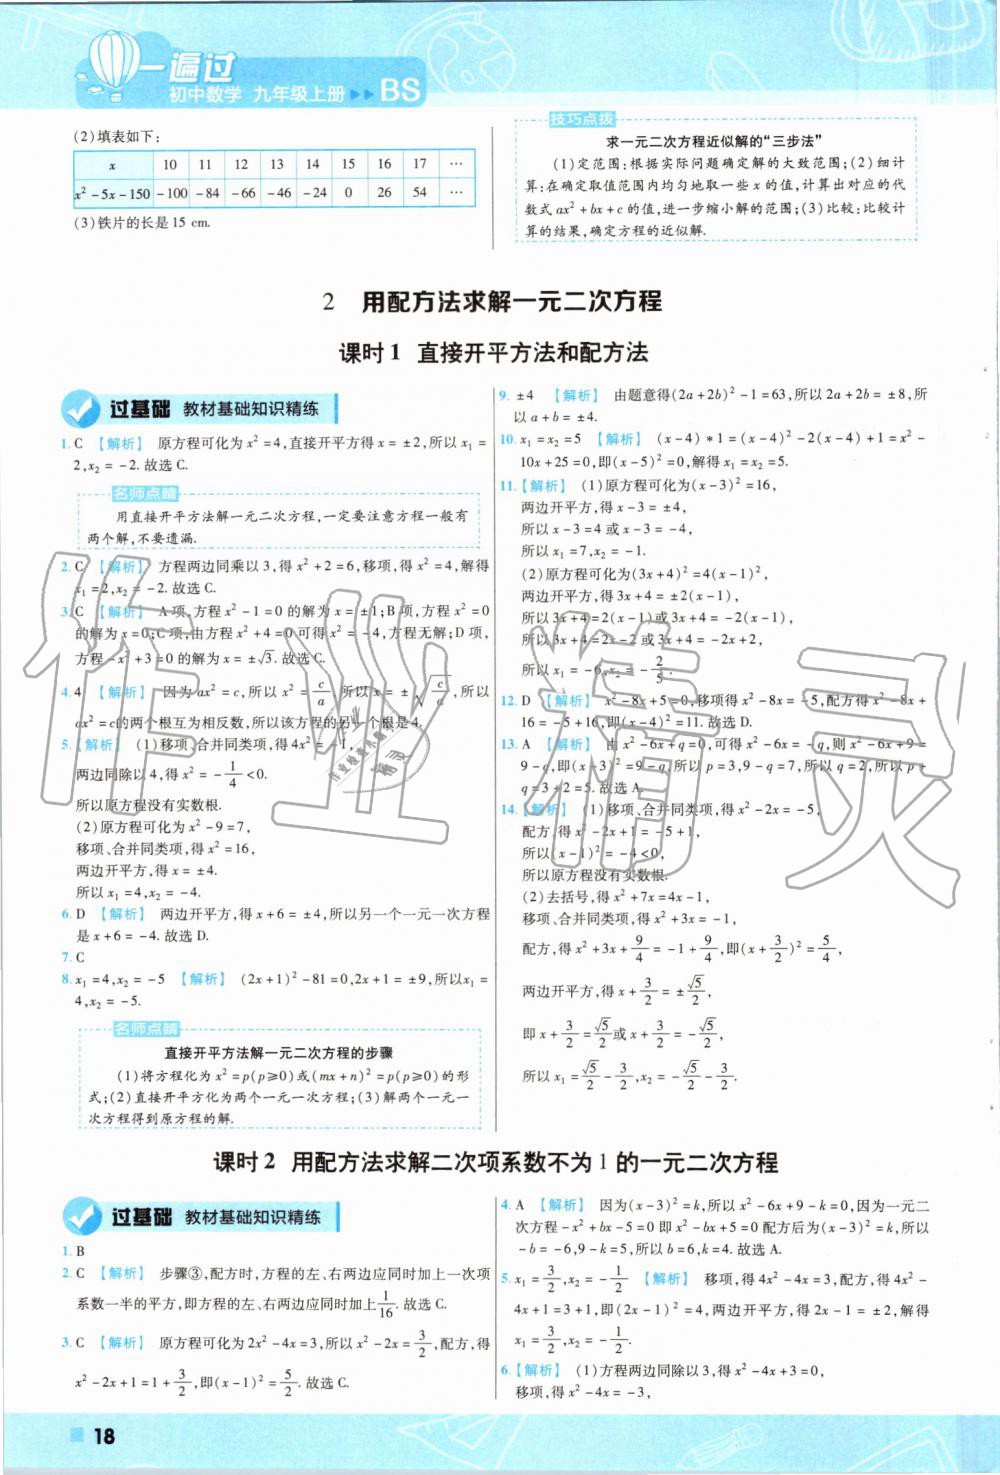 一遍过
初中数学 九年级上册 ▶▶ BS
(2)填表如下:
x 10 11 12 13 14 15 16 17 …
x²-5x-150 -100 -84 -66 -46 -24 0 26 54 …
(3)铁片的长是15 cm.
技巧点拨
求一元二次方程近似解的“三步法”
(1)定范围:根据实际问题确定解的大致范围;(2)细计
算:在确定取值范围内均匀地取一些 x 的值,计算出对应的代
数式 ax²+bx+c 的值,进一步缩小解的范围;(3)比较:比较计
算的结果,确定方程的近似解.
2 用配方法求解一元二次方程
课时1 直接开平方法和配方法
过基础 教材基础知识精练
1. C 【解析】 原方程可化为 x²=4,直接开平方得 x=±2,所以 x₁=
2,x₂=-2. 故选 C.
名师点睛
用直接开平方法解一元二次方程,一定要注意方程一般有
两个解,不要遗漏.
2. C 【解析】 方程两边同乘以3,得 x²+2=6,移项,得 x²=4,解得
x₁=2,x₂=-2. 故选 C.
3. C 【解析】 A项,方程 x²-1=0 的解为 x=±1;B项,方程 x²=0
的解为 x=0;C项,由方程 x²+4=0 可得 x²=-4,方程无解;D项,
方程 -x²+3=0 的解为 x=±√3. 故选 C.
4. 4 【解析】 因为 ax²=c,所以 x²=c/a,所以 x=±√(c/a),所以
ax²=c的两个根互为相反数,所以该方程的另一个根是4.
5.【解析】 (1)移项、合并同类项,得 4x²=-1,
两边同除以4,得 x²=-1/4<0.
所以原方程没有实数根.
(2)原方程可化为 x²-9=7,
移项、合并同类项,得 x²=16,
两边开平方,得 x=±4.
所以 x₁=4,x₂=-4.
6. D 【解析】 两边开平方,得 x+6=±4,所以另一个一元一次方程
是 x+6=-4. 故选 D.
7. C
8. x₁=4,x₂=-5 【解析】 (2x+1)²-81=0,2x+1=±9,所以x₁=
4,x₂=-5.
名师点睛
直接开平方法解一元二次方程的步骤
(1)将方程化为 x²=p(p≥0)或(mx+n)²=p(p≥0)的形
式;(2)直接开平方化为两个一元一次方程;(3)解两个一元一
次方程得到原方程的解.
9. ±4 【解析】 由题意得(2a+2b)²-1=63,所以 2a+2b=±8,所
以 a+b=±4.
10. x₁=x₂=5 【解析】 (x-4)*1=(x-4)²-2(x-4)+1=x²-
10x+25=0,即(x-5)²=0,解得 x₁=x₂=5.
11.【解析】 (1)原方程可化为(x-3)²=16,
两边开平方,得 x-3=±4,
所以 x-3=4 或 x-3=-4,
所以 x₁=7,x₂=-1.
(2)原方程可化为(3x+4)²=4(x-1)²,
两边开平方,得 3x+4=±2(x-1),
所以 3x+4=2(x-1)或 3x+4=-2(x-1),
所以 3x+4=2x-2 或 3x+4=-2x+2,
所以 x₁=-6,x₂=-2/5.
12. D 【解析】 x²-8x+5=0,移项得 x²-8x=-5,配方得 x²-8x+
16=-5+16,即(x-4)²=11. 故选 D.
13. A 【解析】 由 x²-6x+q=0,可得 x²-6x=-q,则 x²-6x+9=
9-q,即(x-3)²=9-q,所以 p=3,9-q=7,所以 q=2,所以 p+
q=3+2=5. 故选 A.
14.【解析】 (1)移项、合并同类项,得 x²-2x=-5,
配方,得 x²-2x+1=-5+1,
所以(x-1)²=-4<0,
所以原方程没有实数根.
(2)去括号,得 x²+7x=4x-1,
移项、合并同类项,得 x²+3x=-1,
配方,得 x²+3x+9/4=-1+9/4,即(x+3/2)²=5/4,
两边开平方,得 x+3/2=±√5/2,
即 x+3/2=√5/2或 x+3/2=-√5/2,
所以 x₁=√5/2-3/2,x₂=-√5/2-3/2.
课时2 用配方法求解二次项系数不为1的一元二次方程
过基础 教材基础知识精练
1. B
2. C 【解析】 步骤③,配方时,方程的左、右两边应同时加上一次项
系数一半的平方,即方程的左、右两边应同时加上1/16. 故选 C.
3. C 【解析】 原方程可化为 2x²-4x=3,所以 x²-2x=3/2,配方,得
x²-2x+1=1+3/2,即(x-1)²=5/2. 故选 C.
4. A 【解析】 因为(x-3)²=k,所以 x²-6x+9-k=0,因为一元二
次方程 -x²+bx-5=0 即 x²-bx+5=0 配方后为(x-3)²=k,所以
-b=-6,9-k=5,所以 b=6,k=4. 故选 A.
5. x₁=3/2,x₂=-1/2 【解析】 移项,得 4x²-4x=3,配方,得 4x²-
4x+1=3+1,即(2x-1)²=4,两边开平方,得 2x-1=±2,解得
x₁=3/2,x₂=-1/2.
6.【解析】 (1)方程两边同除以3,得 x²-4x+3=0,
移项,得 x²-4x=-3,
18
作业精灵